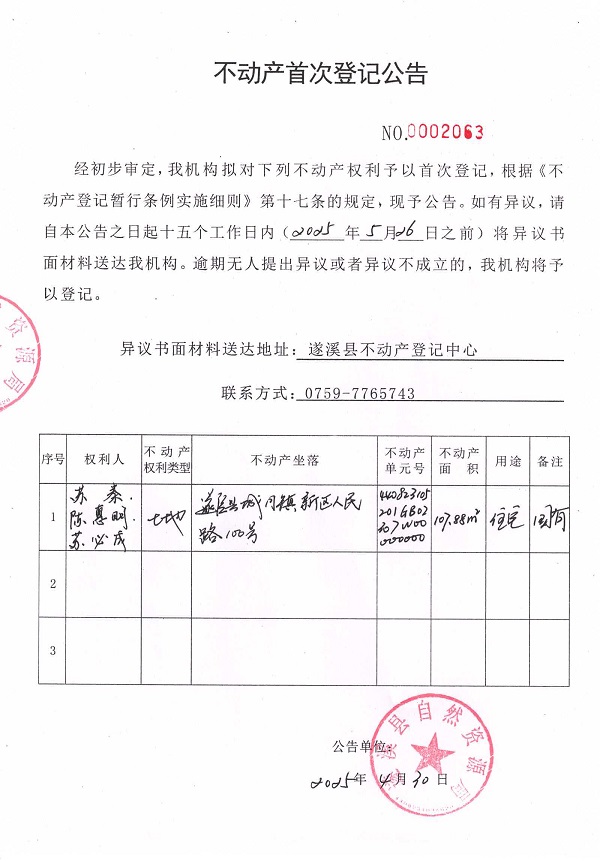 不动产首次登记公告
NO.0002063
经初步审定，我机构拟对下列不动产权利予以首次登记，根据《不
动产登记暂行条例实施细则》第十七条的规定，现予公告。如有异议，请
自本公告之日起十五个工作日内（2025 年 5 月 26 日之前）将异议书
面材料送达我机构。逾期无人提出异议或者异议不成立的，我机构将予
以登记。
资源局
异议书面材料送达地址：遂溪县不动产登记中心
联系方式：0759-7765743
序号 权利人 不动产权利类型 不动产坐落 不动产单元号 不动产面积 用途 备注
1 苏秦、陈惠明、苏必成 土地 遂溪县城月镇新区人民路100号 440823105201GB02307W00000000 107.88m² 住宅 国有
2
3
遂溪县自然资源局
公告单位：
2025年 4 月 30 日